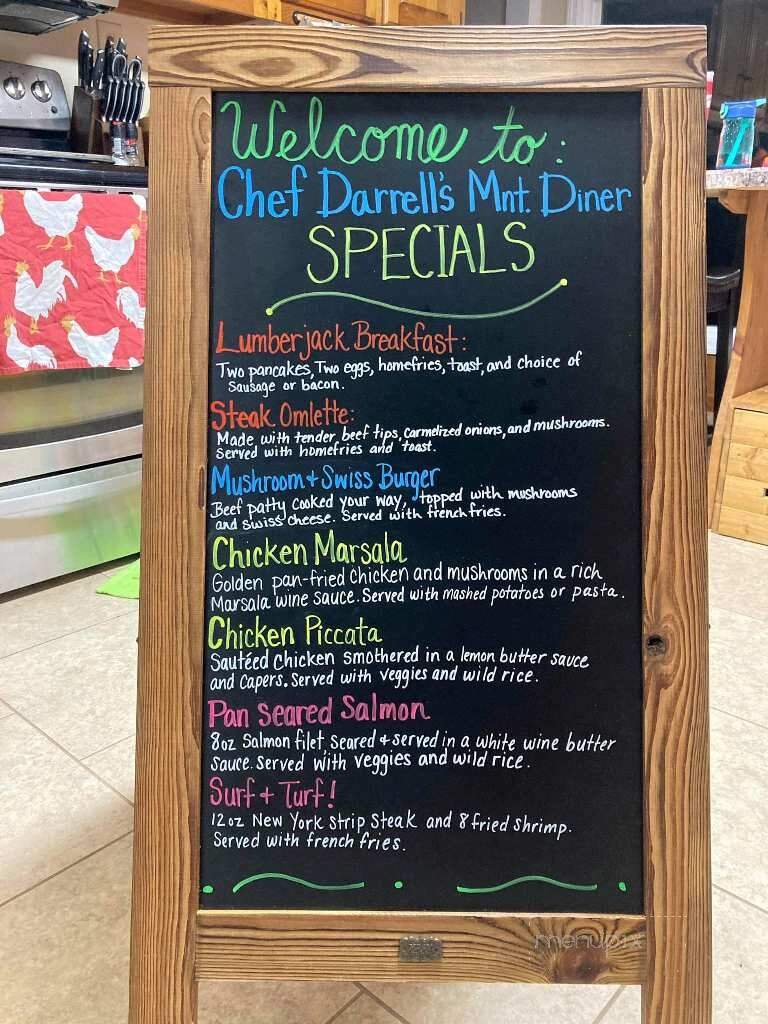 Welcome to:
Chef Darrell's Mnt. Diner
SPECIALS
Lumberjack Breakfast:
Two pancakes, Two eggs, homefries, toast, and choice of
Sausage or bacon.
Steak Omlette:
Made with tender beef tips, carmelized onions, and mushrooms.
Served with homefries and toast.
Mushroom + Swiss Burger
Beef patty cooked your way, topped with mushrooms
and swiss cheese. Served with french fries.
Chicken Marsala
Golden pan-fried chicken and mushrooms in a rich
Marsala wine sauce. Served with mashed potatoes or pasta.
Chicken Piccata
Sautéed Chicken smothered in a lemon butter sauce
and Capers. Served with veggies and wild rice.
Pan Seared Salmon
8oz Salmon filet, seared + served in a white wine butter
sauce. Served with veggies and wild rice.
Surf + Turf!
12oz New York Strip Steak and 8 fried shrimp.
Served with french fries.
menupix